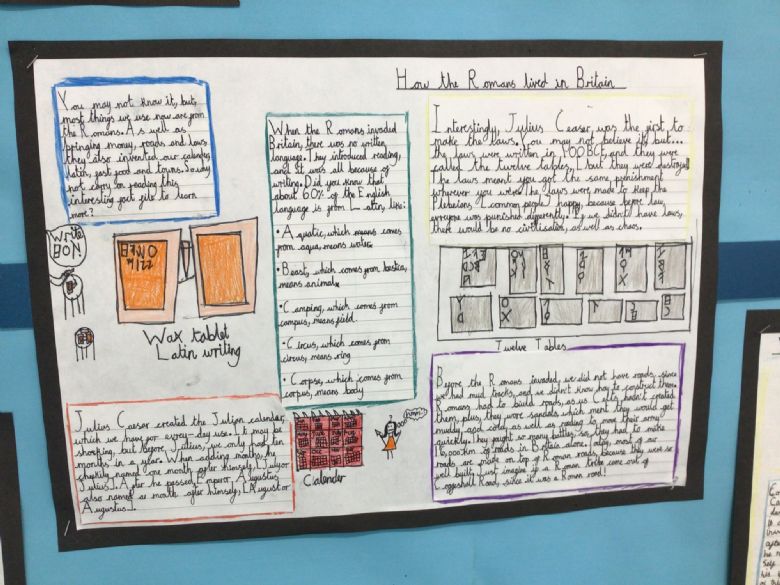 How the Romans lived in Britain
You may not know it, but
most things we use now are from
the Romans. As well as
bringing money, roads and laws
they also invented our calendar,
latin, fast food and towns. So why
not carry on reading this
interesting fact file to learn
more?
Write
Wax tablet
Latin writing
When the Romans invaded
Britain, there was no written
language. They introduced reading,
and it was all because of
writing. Did you know that
about 60% of the English
language is from Latin, like:
• Aquatic, which means comes
from aqua, means water.
• Beast, which comes from bestia,
means animal.
• Camping, which comes from
campus, means field
• Circus, which comes from
circus, means ring
• Corpse, which comes from
corpus, means body
Interestingly, Julius Ceaser was the first to
make the laws. You may not believe it but...
the laws were written in 400BC, and they were
called the twelve tables, but they were destroyed!
The laws meant you got the same, punishment
wherever you were. The laws were made to keep the
Plebeians (common people) happy, because before law,
everyone was punished differently. If we didn't have laws,
there would be no civilisation, as well as chaos.
Twelve Tables
Julius Caesar created the Julian calendar
which we have for every-day use. It may be
shocking, but before, Julius, we only had ten
months in a year. When adding months, he
cheekily named one month after himself, (July or
Julius). After he passed Emperor, Augustus
also named a month after himself, (August or
Augustus).
Calender
Before the Romans invaded, we did not have roads, since
we had mud tracks, and we didn't know how to construct them.
Romans had to build roads, as us Celts hadn't created
them, plus, they wore sandals which ment they would get
muddy and cold, as well as needing to move their army
quickly. They fought so many battles, so they had to make
16,000km of roads in Britain alone. Today, most of our
roads are made on top of Roman roads, because they were so
well built. Just imagine if a Roman tribe came out of
Coggeshall Road, since it was a Roman road!